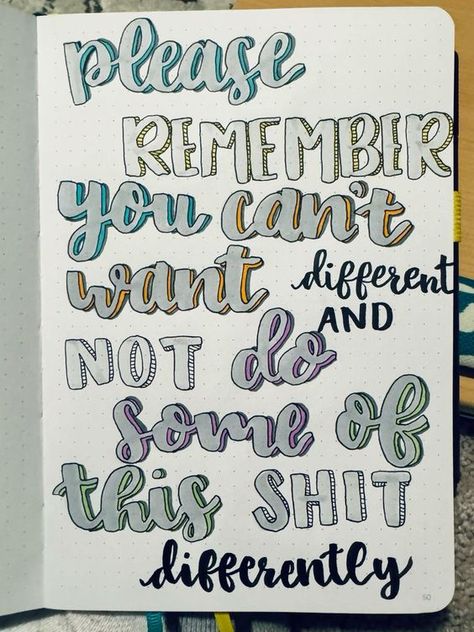 please
REMEMBER
you can't
want different
AND
NOT do
some of
this SHIT
differently
50